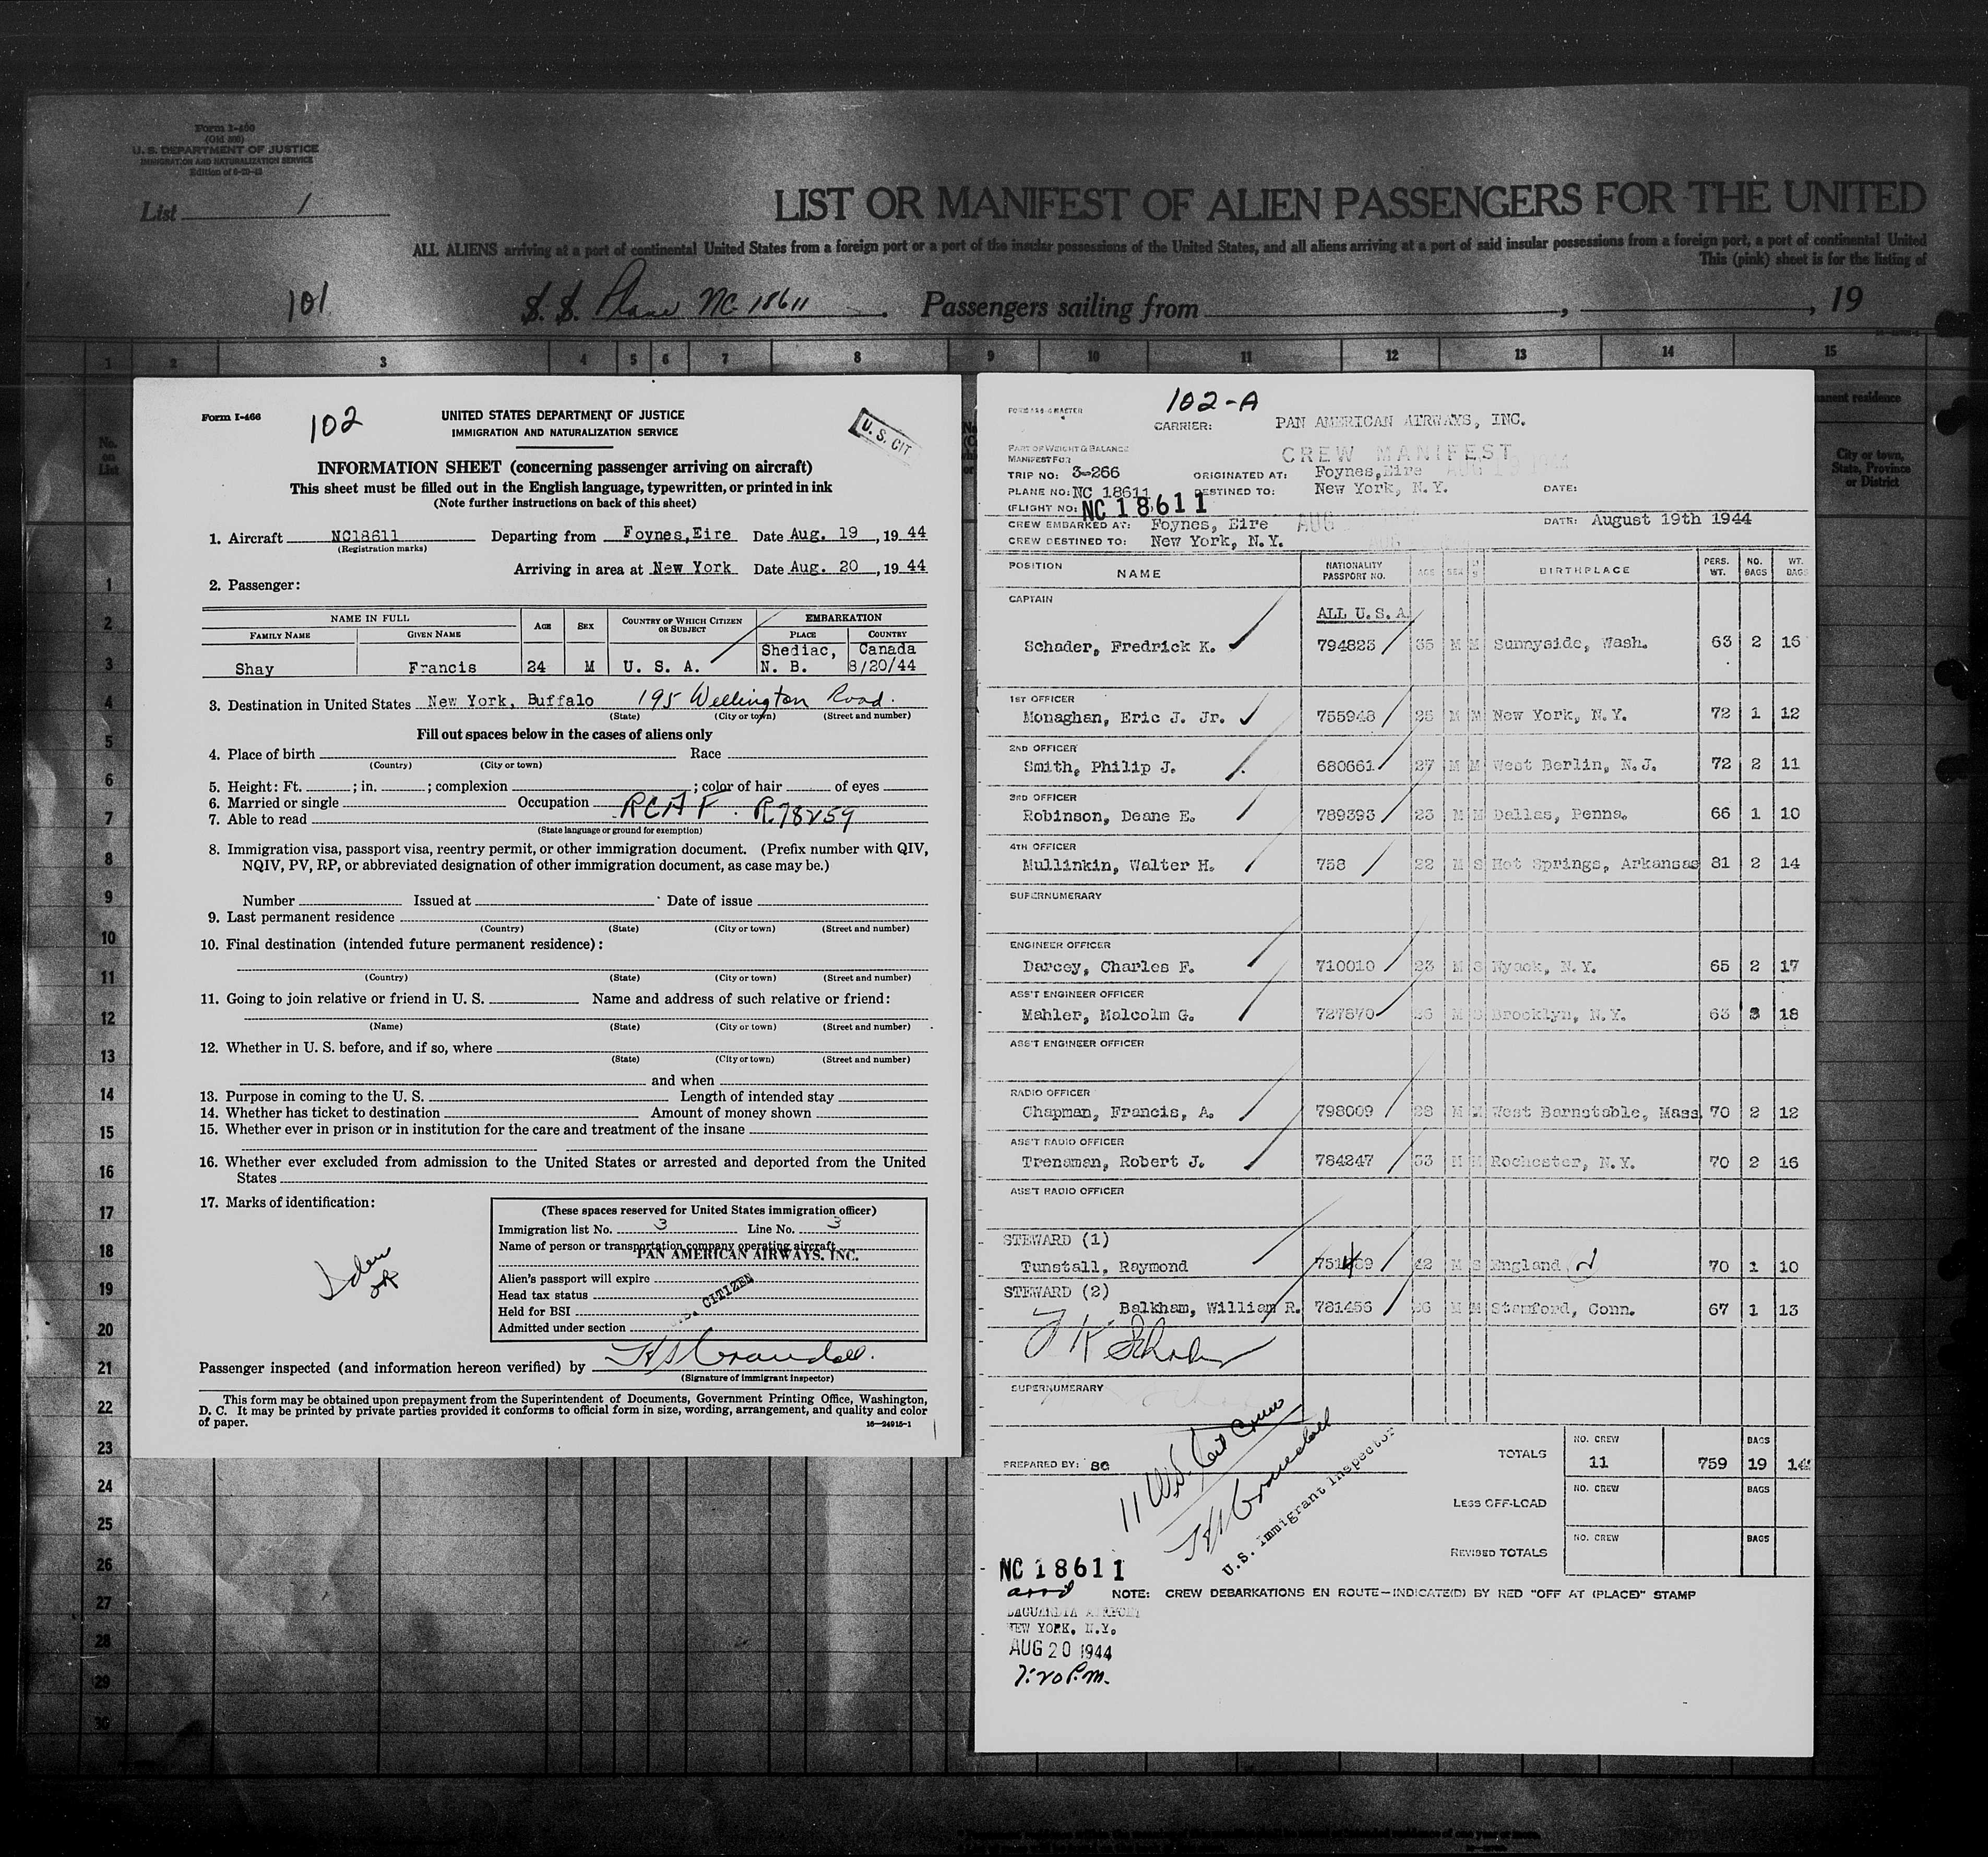 Form I-466
(Old 500)
U. S. DEPARTMENT OF JUSTICE
IMMIGRATION AND NATURALIZATION SERVICE
List 1
LIST OR MANIFEST OF ALIEN PASSENGERS FOR THE UNITED
ALL ALIENS arriving at a port of continental United States from a foreign port or a port of the insular possessions of the United States, and all aliens arriving at a port of said insular possessions from a foreign port, a port of continental United
This (pink) sheet is for the listing of
101 S. S. Plane NC 18611. Passengers sailing from , , 19
1 2 3 4 5 6 7 8 9 10 11 12 13 14 15
No. on List
anent residence
City or town, State, Province or District
1
2
3
4
5
6
7
8
9
10
11
12
13
14
15
16
17
18
19
20
21
22
23
24
25
26
27
28
29
30
Form I-466
102
UNITED STATES DEPARTMENT OF JUSTICE
IMMIGRATION AND NATURALIZATION SERVICE
U. S. CIT
INFORMATION SHEET (concerning passenger arriving on aircraft)
This sheet must be filled out in the English language, typewritten, or printed in ink
(Note further instructions on back of this sheet)
1. Aircraft NC18611 Departing from Foynes,Eire Date Aug. 19, 1944
(Registration marks)
Arriving in area at New York Date Aug. 20, 1944
2. Passenger:
NAME IN FULL AGE SEX COUNTRY OF WHICH CITIZEN OR SUBJECT EMBARKATION
FAMILY NAME GIVEN NAME PLACE COUNTRY
Shediac, Canada
Shay Francis 24 M U. S. A. N. B. 8/20/44
3. Destination in United States New York, Buffalo 195 Wellington Road.
(State) (City or town) (Street and number)
Fill out spaces below in the cases of aliens only
4. Place of birth Race
(Country) (City or town)
5. Height: Ft. ; in. ; complexion ; color of hair of eyes
6. Married or single Occupation RCAF. R.78259
7. Able to read
(State language or ground for exemption)
8. Immigration visa, passport visa, reentry permit, or other immigration document. (Prefix number with QIV,
NQIV, PV, RP, or abbreviated designation of other immigration document, as case may be.)
Number Issued at Date of issue
9. Last permanent residence
(Country) (State) (City or town) (Street and number)
10. Final destination (intended future permanent residence):
(Country) (State) (City or town) (Street and number)
11. Going to join relative or friend in U. S. Name and address of such relative or friend:
(Name) (State) (City or town) (Street and number)
12. Whether in U. S. before, and if so, where
(State) (City or town) (Street and number)
and when
13. Purpose in coming to the U. S. Length of intended stay
14. Whether has ticket to destination Amount of money shown
15. Whether ever in prison or in institution for the care and treatment of the insane
16. Whether ever excluded from admission to the United States or arrested and deported from the United
States
17. Marks of identification:
(These spaces reserved for United States immigration officer)
Immigration list No. 3 Line No. 3
Name of person or transportation company operating aircraft
PAN AMERICAN AIRWAYS, INC.
Alien's passport will expire
Head tax status
Held for BSI
Admitted under section
U.S. CITIZEN
Passenger inspected (and information hereon verified) by H S Crandall.
(Signature of immigrant inspector)
This form may be obtained upon prepayment from the Superintendent of Documents, Government Printing Office, Washington,
D. C. It may be printed by private parties provided it conforms to official form in size, wording, arrangement, and quality and color
of paper. 16—24915-1
102-A
CARRIER: PAN AMERICAN AIRWAYS, INC.
PART OF WEIGHT & BALANCE
MANIFEST FOR
CREW MANIFEST
TRIP NO: 3-266 ORIGINATED AT: Foynes,Eire
PLANE NO: NC 18611 DESTINED TO: New York, N.Y. DATE:
(FLIGHT NO: NC18611
CREW EMBARKED AT: Foynes, Eire AUG DATE: August 19th 1944
CREW DESTINED TO: New York, N.Y.
POSITION NAME NATIONALITY PASSPORT NO. AGE SEX BIRTHPLACE PERS. WT. NO. BAGS WT. BAGS
CAPTAIN
ALL U.S.A
Schader, Fredrick K. 794823 35 M M Sunnyside, Wash. 63 2 16
1ST OFFICER
Monaghan, Eric J. Jr. 755948 25 M M New York, N.Y. 72 1 12
2ND OFFICER
Smith, Philip J. 680661 27 M M West Berlin, N.J. 72 2 11
3RD OFFICER
Robinson, Deane E. 789393 23 M M Dallas, Penna. 66 1 10
4TH OFFICER
Mullinkin, Walter H. 758 22 M S Hot Springs, Arkansas 81 2 14
SUPERNUMERARY
ENGINEER OFFICER
Darcey, Charles F. 710010 23 M S Nyack, N.Y. 65 2 17
ASS'T ENGINEER OFFICER
Mahler, Malcolm G. 727870 26 M S Brooklyn, N.Y. 63 3 18
ASS'T ENGINEER OFFICER
RADIO OFFICER
Chapman, Francis, A. 798009 28 M M West Barnstable, Mass 70 2 12
ASS'T RADIO OFFICER
Trenaman, Robert J. 784247 33 M M Rochester, N.Y. 70 2 16
ASS'T RADIO OFFICER
STEWARD (1)
Tunstall, Raymond 751489 42 M S England 70 1 10
STEWARD (2)
Balkham, William R. 781456 26 M M Stamford, Conn. 67 1 13
F K Schader
SUPERNUMERARY
PREPARED BY: SG
TOTALS NO. CREW 11 759 BAGS 19 14
LESS OFF-LOAD NO. CREW BAGS
REVISED TOTALS NO. CREW BAGS
11 U.S. Cit Crew
H S Crandall
U.S. Immigrant Inspector
NC 18611
arrd
NOTE: CREW DEBARKATIONS EN ROUTE—INDICATE(D) BY RED "OFF AT (PLACE)" STAMP
LAGUARDIA AIRPORT
NEW YORK, N.Y.
AUG 20 1944
7:20 P.M.